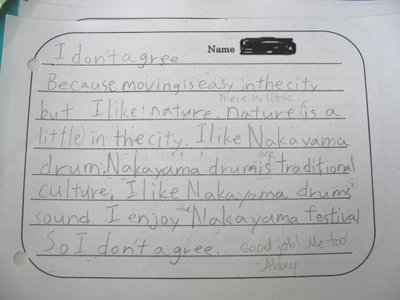 Name
I don't agree
Because moving is easy in the city
but I like nature. nature (is a
There is little
little) in the city. I like Nakayama
drum. Nakayama drum is traditional
are
culture. I like Nakayama drums'
sound. I enjoy the Nakayama festival
So I don't agree. Good job! Me too!
Abbey